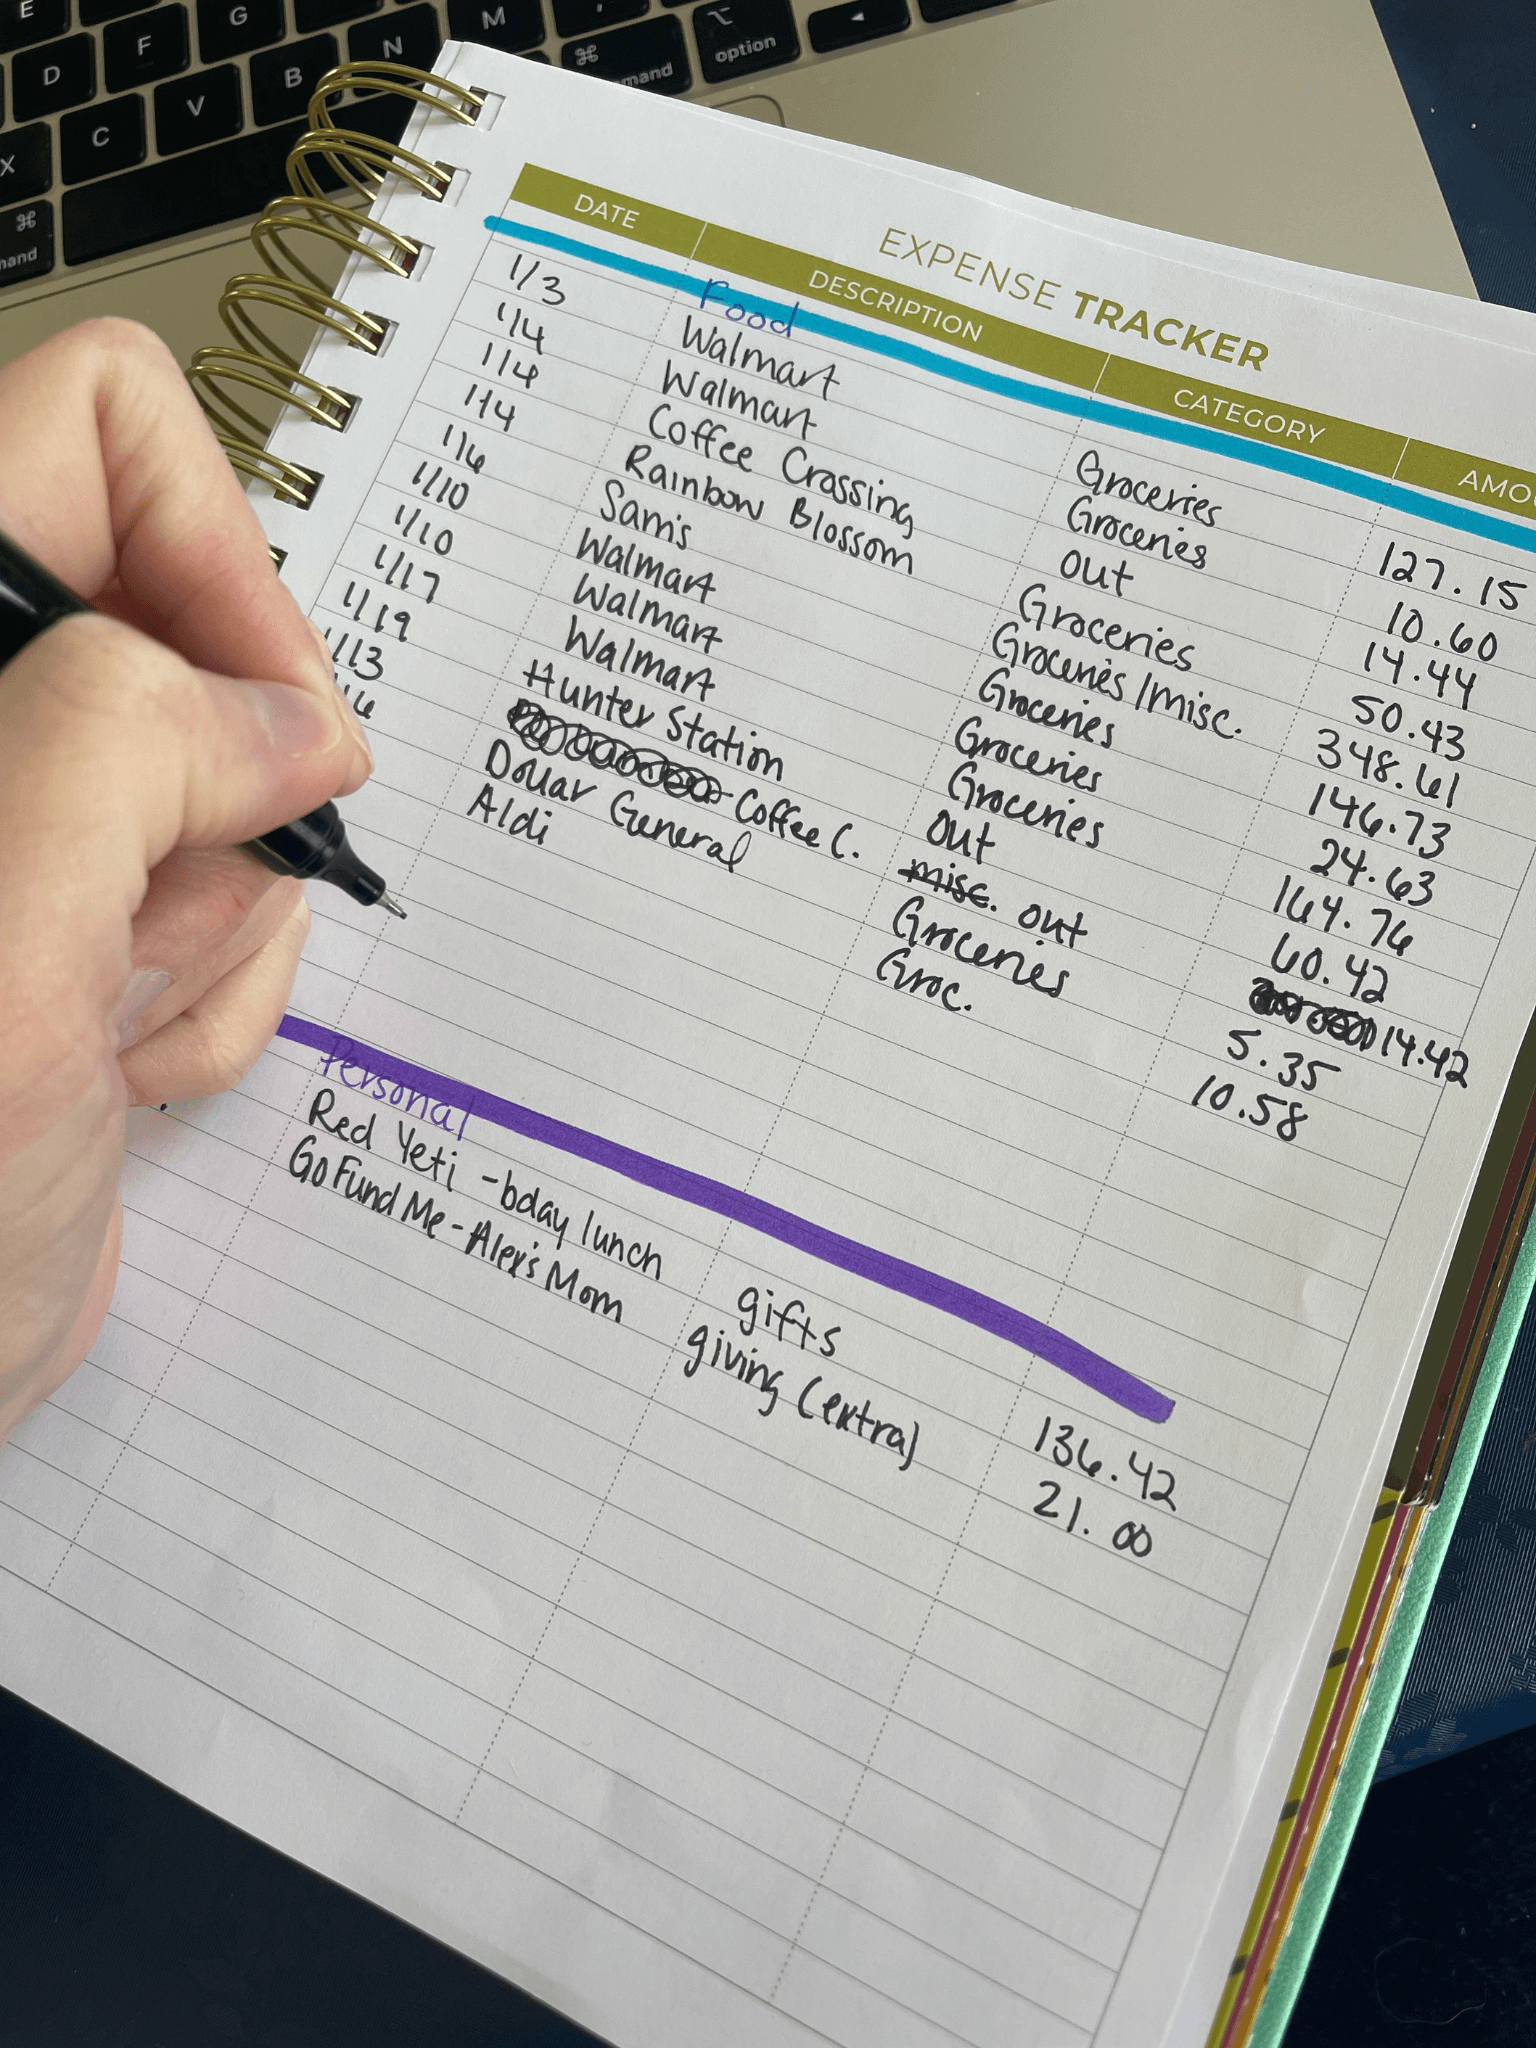 E
D F G
X C V B N M ,
⌘ ⌘ ⌥
mand option
hand
EXPENSE TRACKER
DATE DESCRIPTION CATEGORY AMO
Food
1/3 Walmart Groceries 127.15
1/4 Walmart Groceries 10.60
1/4 Coffee Crossing Out 14.44
1/4 Rainbow Blossom Groceries 50.43
1/6 Sam's Groceries/misc. 348.61
1/10 Walmart Groceries 146.73
1/10 Walmart Groceries 24.63
1/17 Walmart Groceries 164.76
1/19 Hunter Station Out 60.42
1/13 Coffee C. misc. out 14.42
Dollar General Groceries 5.35
Aldi Groc. 10.58
Personal
Red Yeti - bday lunch gifts 136.42
GoFundMe - Alex's Mom giving (extra) 21.00